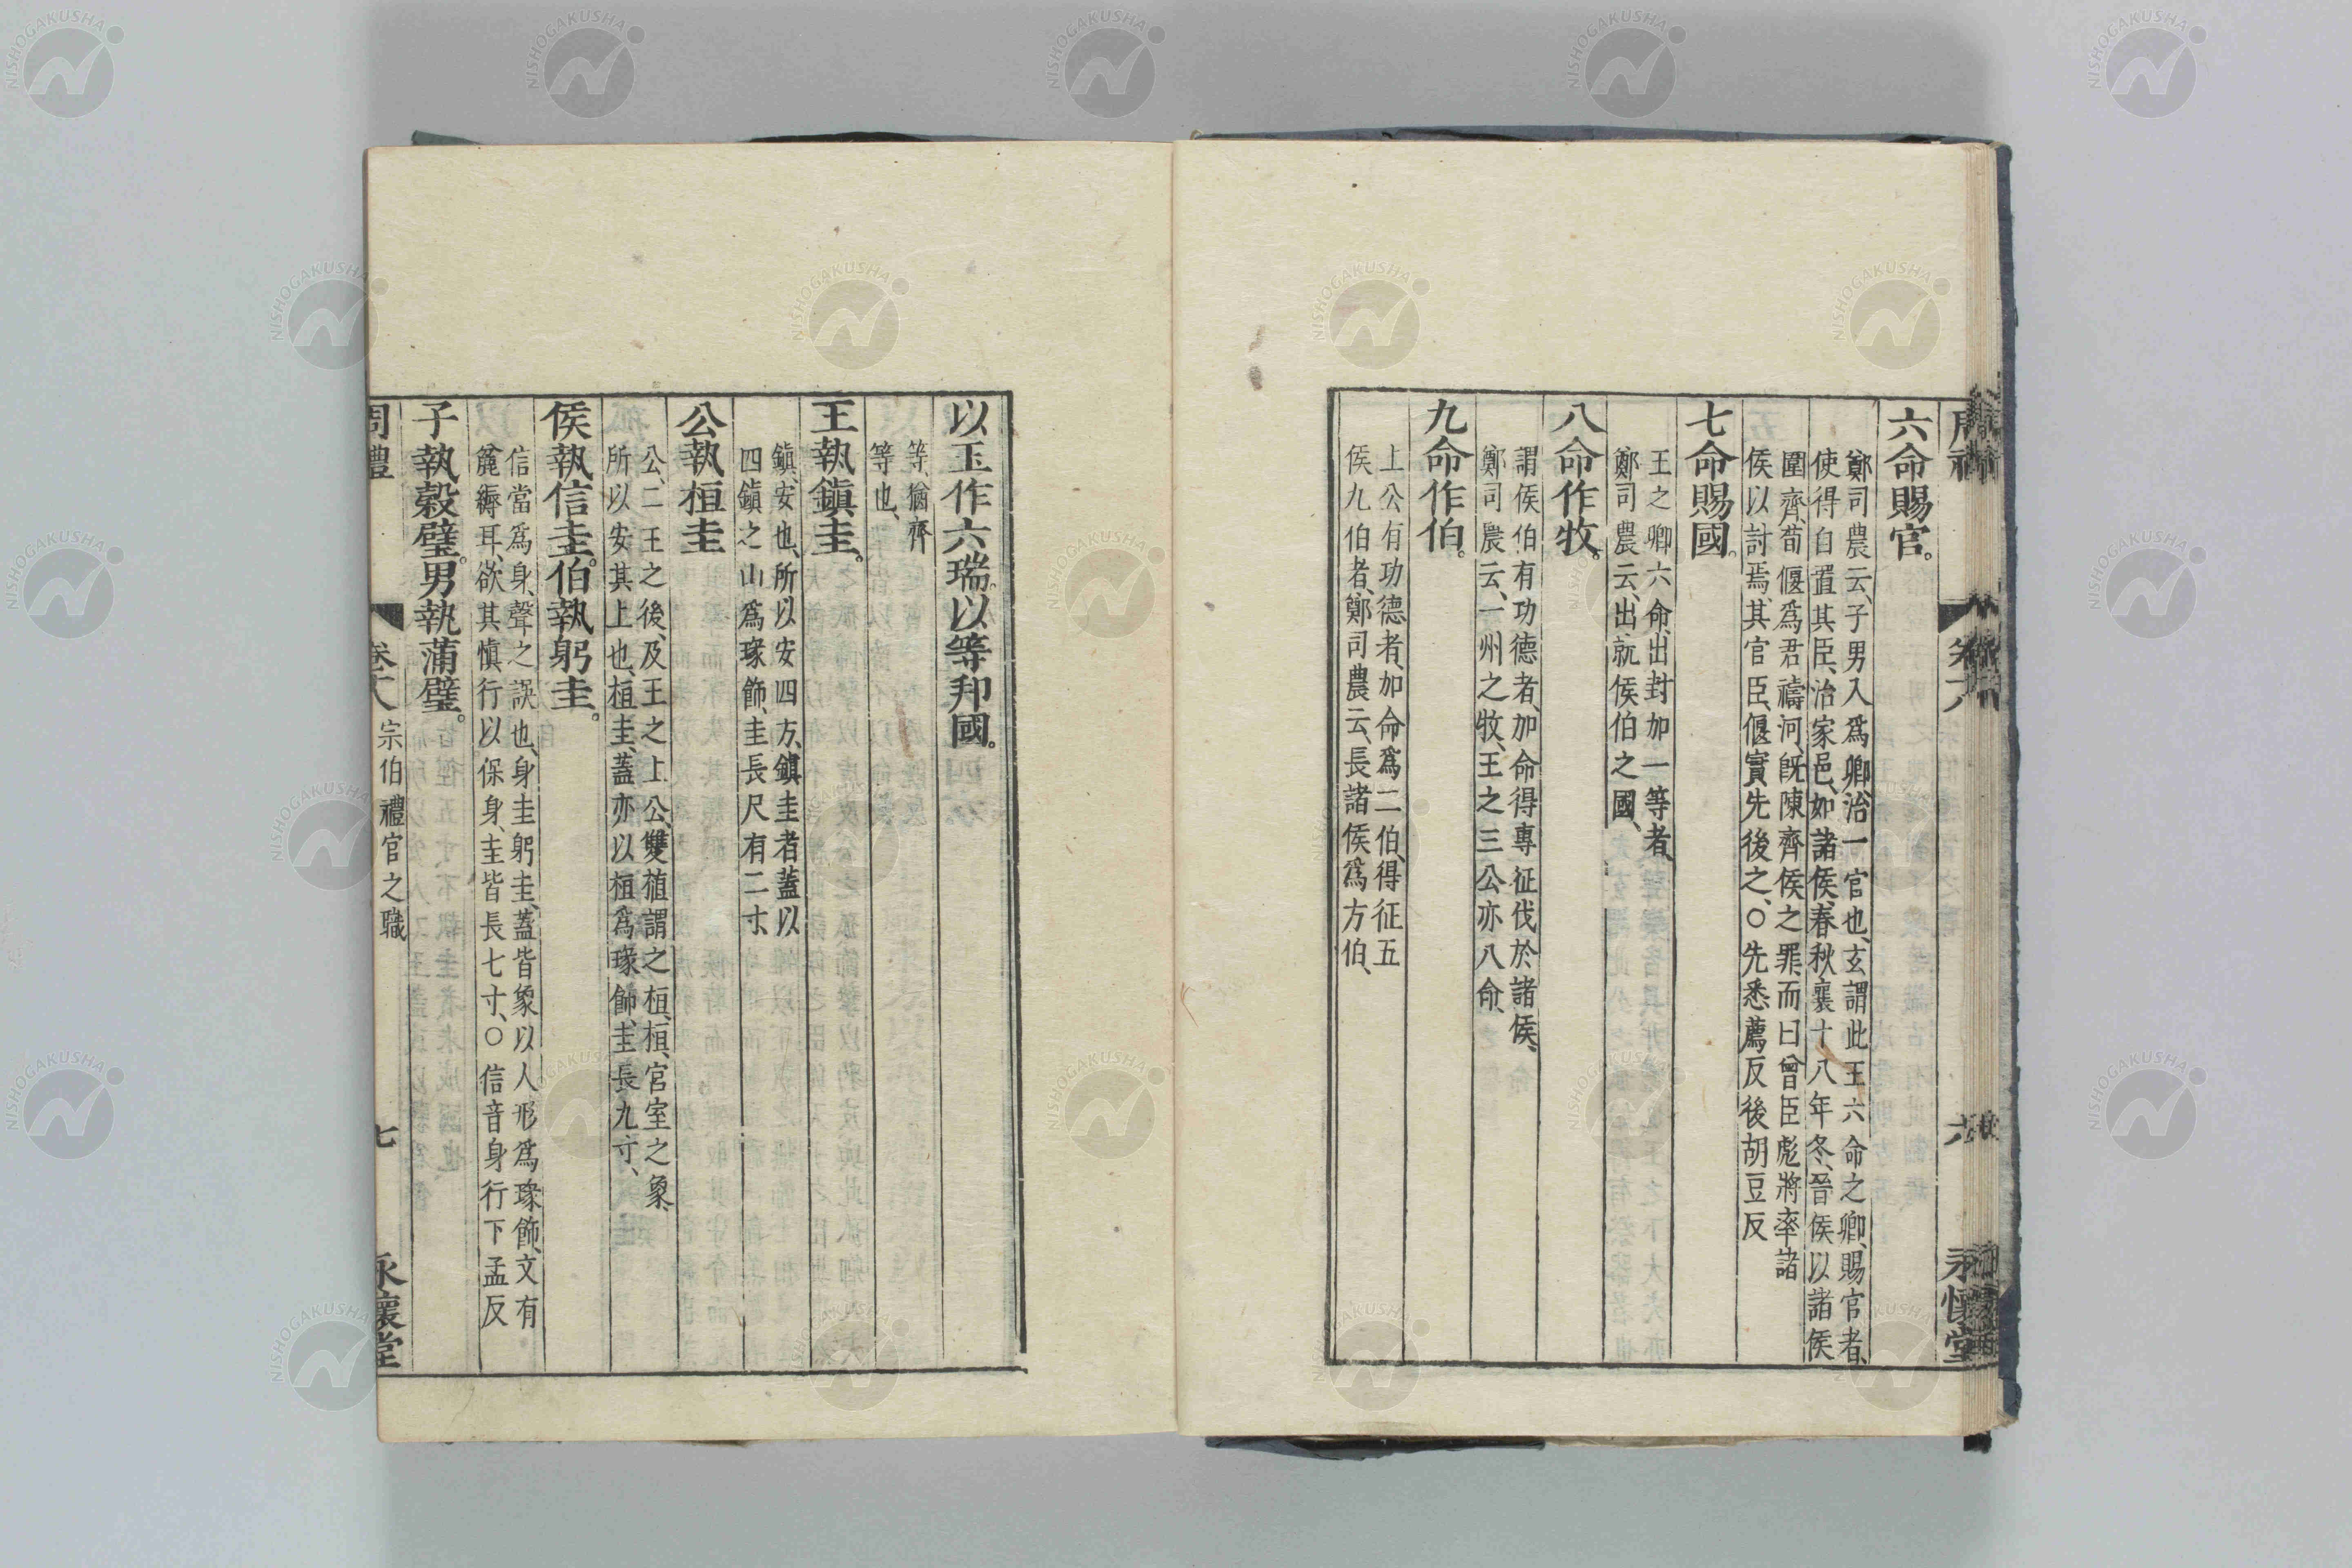 六命賜官。
鄭司農云、子男入爲卿、治一官也、玄謂此王六命之卿、賜官者、
使得自置其臣、治家邑、如諸侯、春秋襄十八年冬、晉侯以諸侯
圍齊、荀偃爲君禱河、旣陳齊侯之罪、而曰曾臣彪將率諸
侯以討焉、其官臣、偃實先後之、○先悉薦反後胡豆反
七命賜國。
王之卿六命、出封加一等者、
鄭司農云、出就侯伯之國、
八命作牧。
謂侯伯有功德者、加命得專征伐於諸侯、
鄭司農云、一州之牧、王之三公亦八命、
九命作伯。
上公有功德者、加命爲二伯、得征五
侯九伯者、鄭司農云、長諸侯爲方伯、
以玉作六瑞。以等邦國。
等、猶齊
等也、
王執鎮圭。
鎮、安也、所以安四方、鎮圭者、蓋以
四鎮之山爲瑑飾、圭長尺有二寸、
公執桓圭
公、二王之後、及王之上公、雙植謂之桓、桓、宮室之象、
所以安其上也、桓圭、蓋亦以桓爲瑑飾、圭長九寸、
侯執信圭。伯執躬圭。
信當爲身、聲之誤也、身圭躬圭、蓋皆象以人形爲瑑飾、文有
麄縟耳、欲其慎行以保身、圭皆長七寸、○信音身行下孟反
子執榖璧。男執蒲璧。
周禮 宗伯禮官之職 七 永懷堂